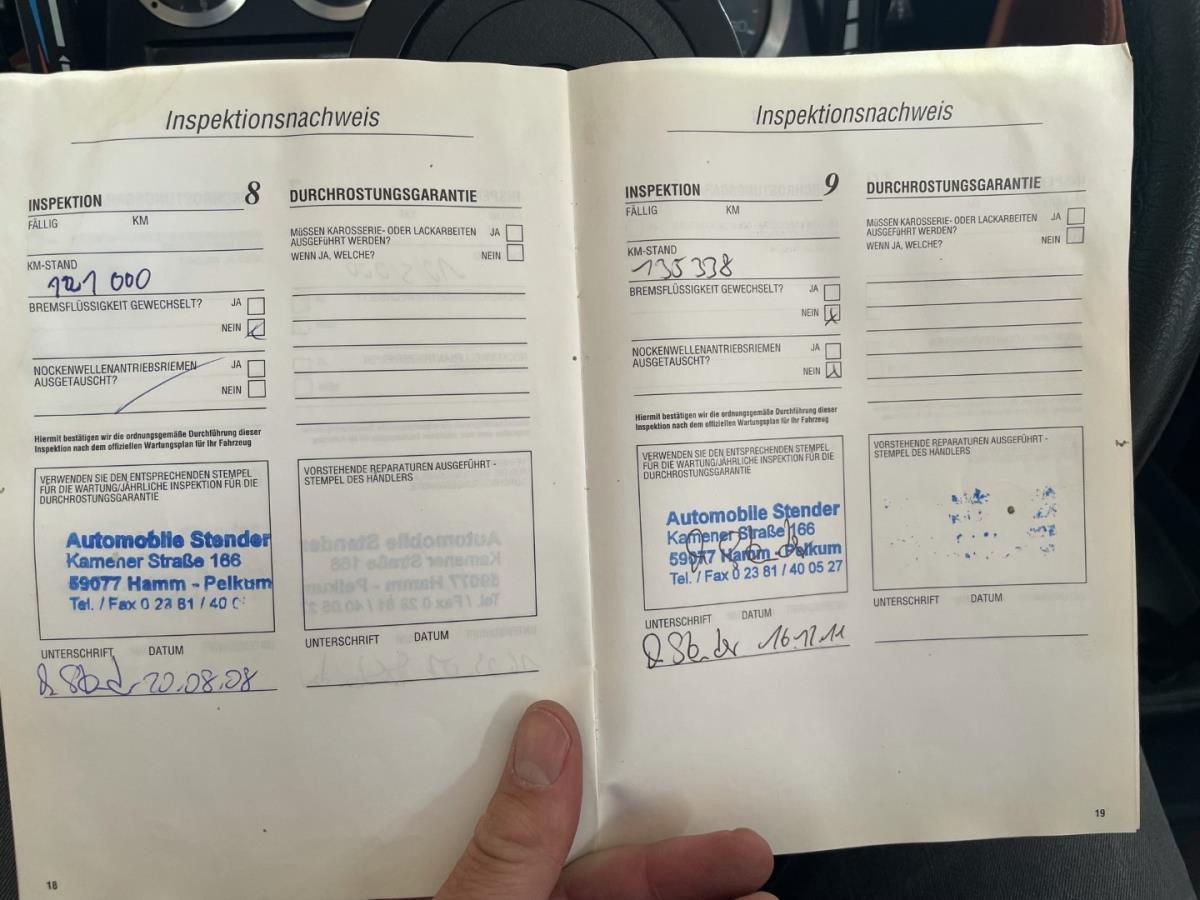 Inspektionsnachweis
INSPEKTION 8
FÄLLIG KM
KM-STAND
121 000
BREMSFLÜSSIGKEIT GEWECHSELT? JA
NEIN
NOCKENWELLENANTRIEBSRIEMEN JA
AUSGETAUSCHT?
NEIN
Hiermit bestätigen wir die ordnungsgemäße Durchführung dieser
Inspektion nach dem offiziellen Wartungsplan für Ihr Fahrzeug
VERWENDEN SIE DEN ENTSPRECHENDEN STEMPEL
FÜR DIE WARTUNG/JÄHRLICHE INSPEKTION FÜR DIE
DURCHROSTUNGSGARANTIE
Automobile Stender
Kamener Straße 166
59077 Hamm - Pelkum
Tel. / Fax 0 23 81 / 40 0
UNTERSCHRIFT DATUM
20.08.08
DURCHROSTUNGSGARANTIE
MÜSSEN KAROSSERIE- ODER LACKARBEITEN JA
AUSGEFÜHRT WERDEN?
WENN JA, WELCHE? NEIN
VORSTEHENDE REPARATUREN AUSGEFÜHRT -
STEMPEL DES HÄNDLERS
UNTERSCHRIFT DATUM
18
Inspektionsnachweis
INSPEKTION 9
FÄLLIG KM
KM-STAND
135 338
BREMSFLÜSSIGKEIT GEWECHSELT? JA
NEIN
NOCKENWELLENANTRIEBSRIEMEN JA
AUSGETAUSCHT?
NEIN
Hiermit bestätigen wir die ordnungsgemäße Durchführung dieser
Inspektion nach dem offiziellen Wartungsplan für Ihr Fahrzeug
VERWENDEN SIE DEN ENTSPRECHENDEN STEMPEL
FÜR DIE WARTUNG/JÄHRLICHE INSPEKTION FÜR DIE
DURCHROSTUNGSGARANTIE
Automobile Stender
Kamener Straße 166
59077 Hamm - Pelkum
Tel. / Fax 0 23 81 / 40 05 27
UNTERSCHRIFT DATUM
16.12.11
DURCHROSTUNGSGARANTIE
MÜSSEN KAROSSERIE- ODER LACKARBEITEN JA
AUSGEFÜHRT WERDEN?
WENN JA, WELCHE? NEIN
VORSTEHENDE REPARATUREN AUSGEFÜHRT -
STEMPEL DES HÄNDLERS
UNTERSCHRIFT DATUM
19